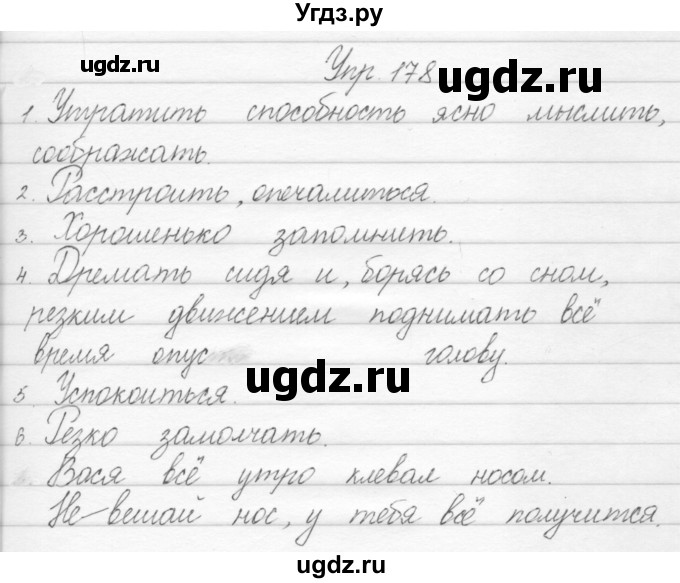 Угдз.ру
ugdz.ru
Упр. 178
ugdz.ru
1. Утратить способность ясно мыслить,
соображать.
ugdz.ru
ugdz.ru
2. Расстроить, опечалиться.
3. Хорошенько запомнить.
4. Дремать сидя и, борясь со сном,
резким движением поднимать всё
время опус голову.
ugdz.ru
5. Успокоиться.
ugdz.ru
6. Резко замолчать.
Вася всё утро клевал носом.
Не вешай нос, у тебя всё получится.
ugdz.ru